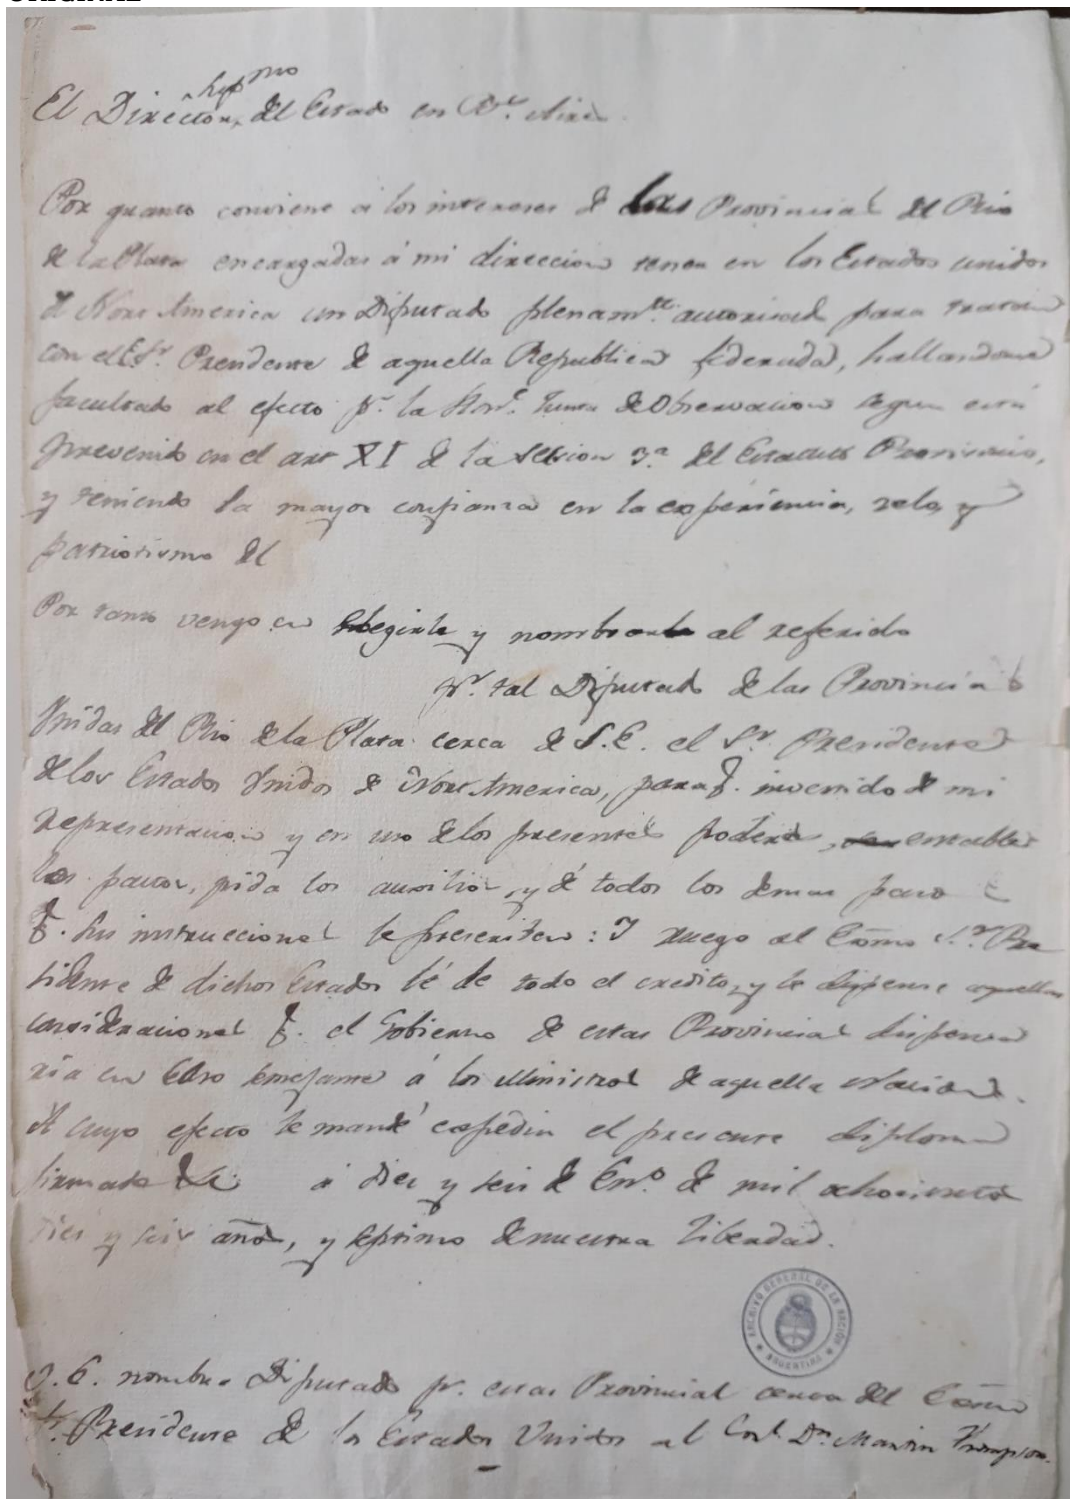 Sup.mo
El Director, del Estado en B.s Aires.
Por quanto conviene á los intereses de las Provincias del Rio
de la Plata encargadas á mi direccion tener en los Estados unidos
de Norte America un Diputado plenam.te autorisado para tratar
con el E. S.r Presidente de aquella Republica federada, hallandome
facultado al efecto p.r la Hon.e Junta de Observacion segun está
prevenido en el art XI de la seccion 3.a del Estatuto Provisorio,
y teniendo la mayor confianza en la experiencia, zelo, y
patriotismo del
Por tanto vengo en elegirle y nombrarle al referido
p.r tal Diputado de las Provincias
Unidas del Rio de la Plata cerca de S.E. el S.r Presidente
de los Estados Unidos de Norte America, para q. investido de mi
representacion y en uso de los presentes poderes, entable
los pactos, pida los auxilios, y dé todos los demas pasos
q. sus instrucciones le prescriben: I ruego al Exmo S.or Pre
sidente de dichos Estados le dé todo el credito, y le dispense aquellas
consideraciones q. el Gobierno de estas Provincias dispensa
ria en caso semejante á los Ministros de aquella Nacion.
A cuyo efecto le mandé expedir el presente diploma
firmado á diez y seis de En.o de mil ochocientos
diez y seis años, y septimo de nuestra libertad.
ARCHIVO GENERAL DE LA NACION
ARGENTINA
S. E. nombra Diputado p.r estas Provincias cerca del Exmo
S.r Presidente de los Estados Unidos al Cor.l D.n Martin Thompson.